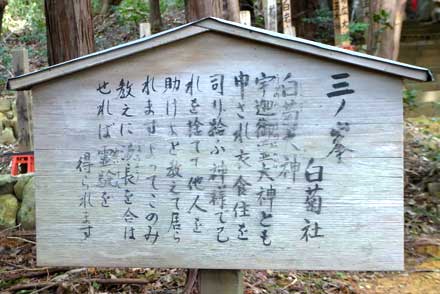 三ノ峯
白菊社
白菊大神
宇迦御霊大神とも
申され衣食住を
司り給ふ神様で己
れを捨てて他人を
助けよと教えて居ら
れますよってこのみ
教えに
長を念は
せれば霊験を
得られます